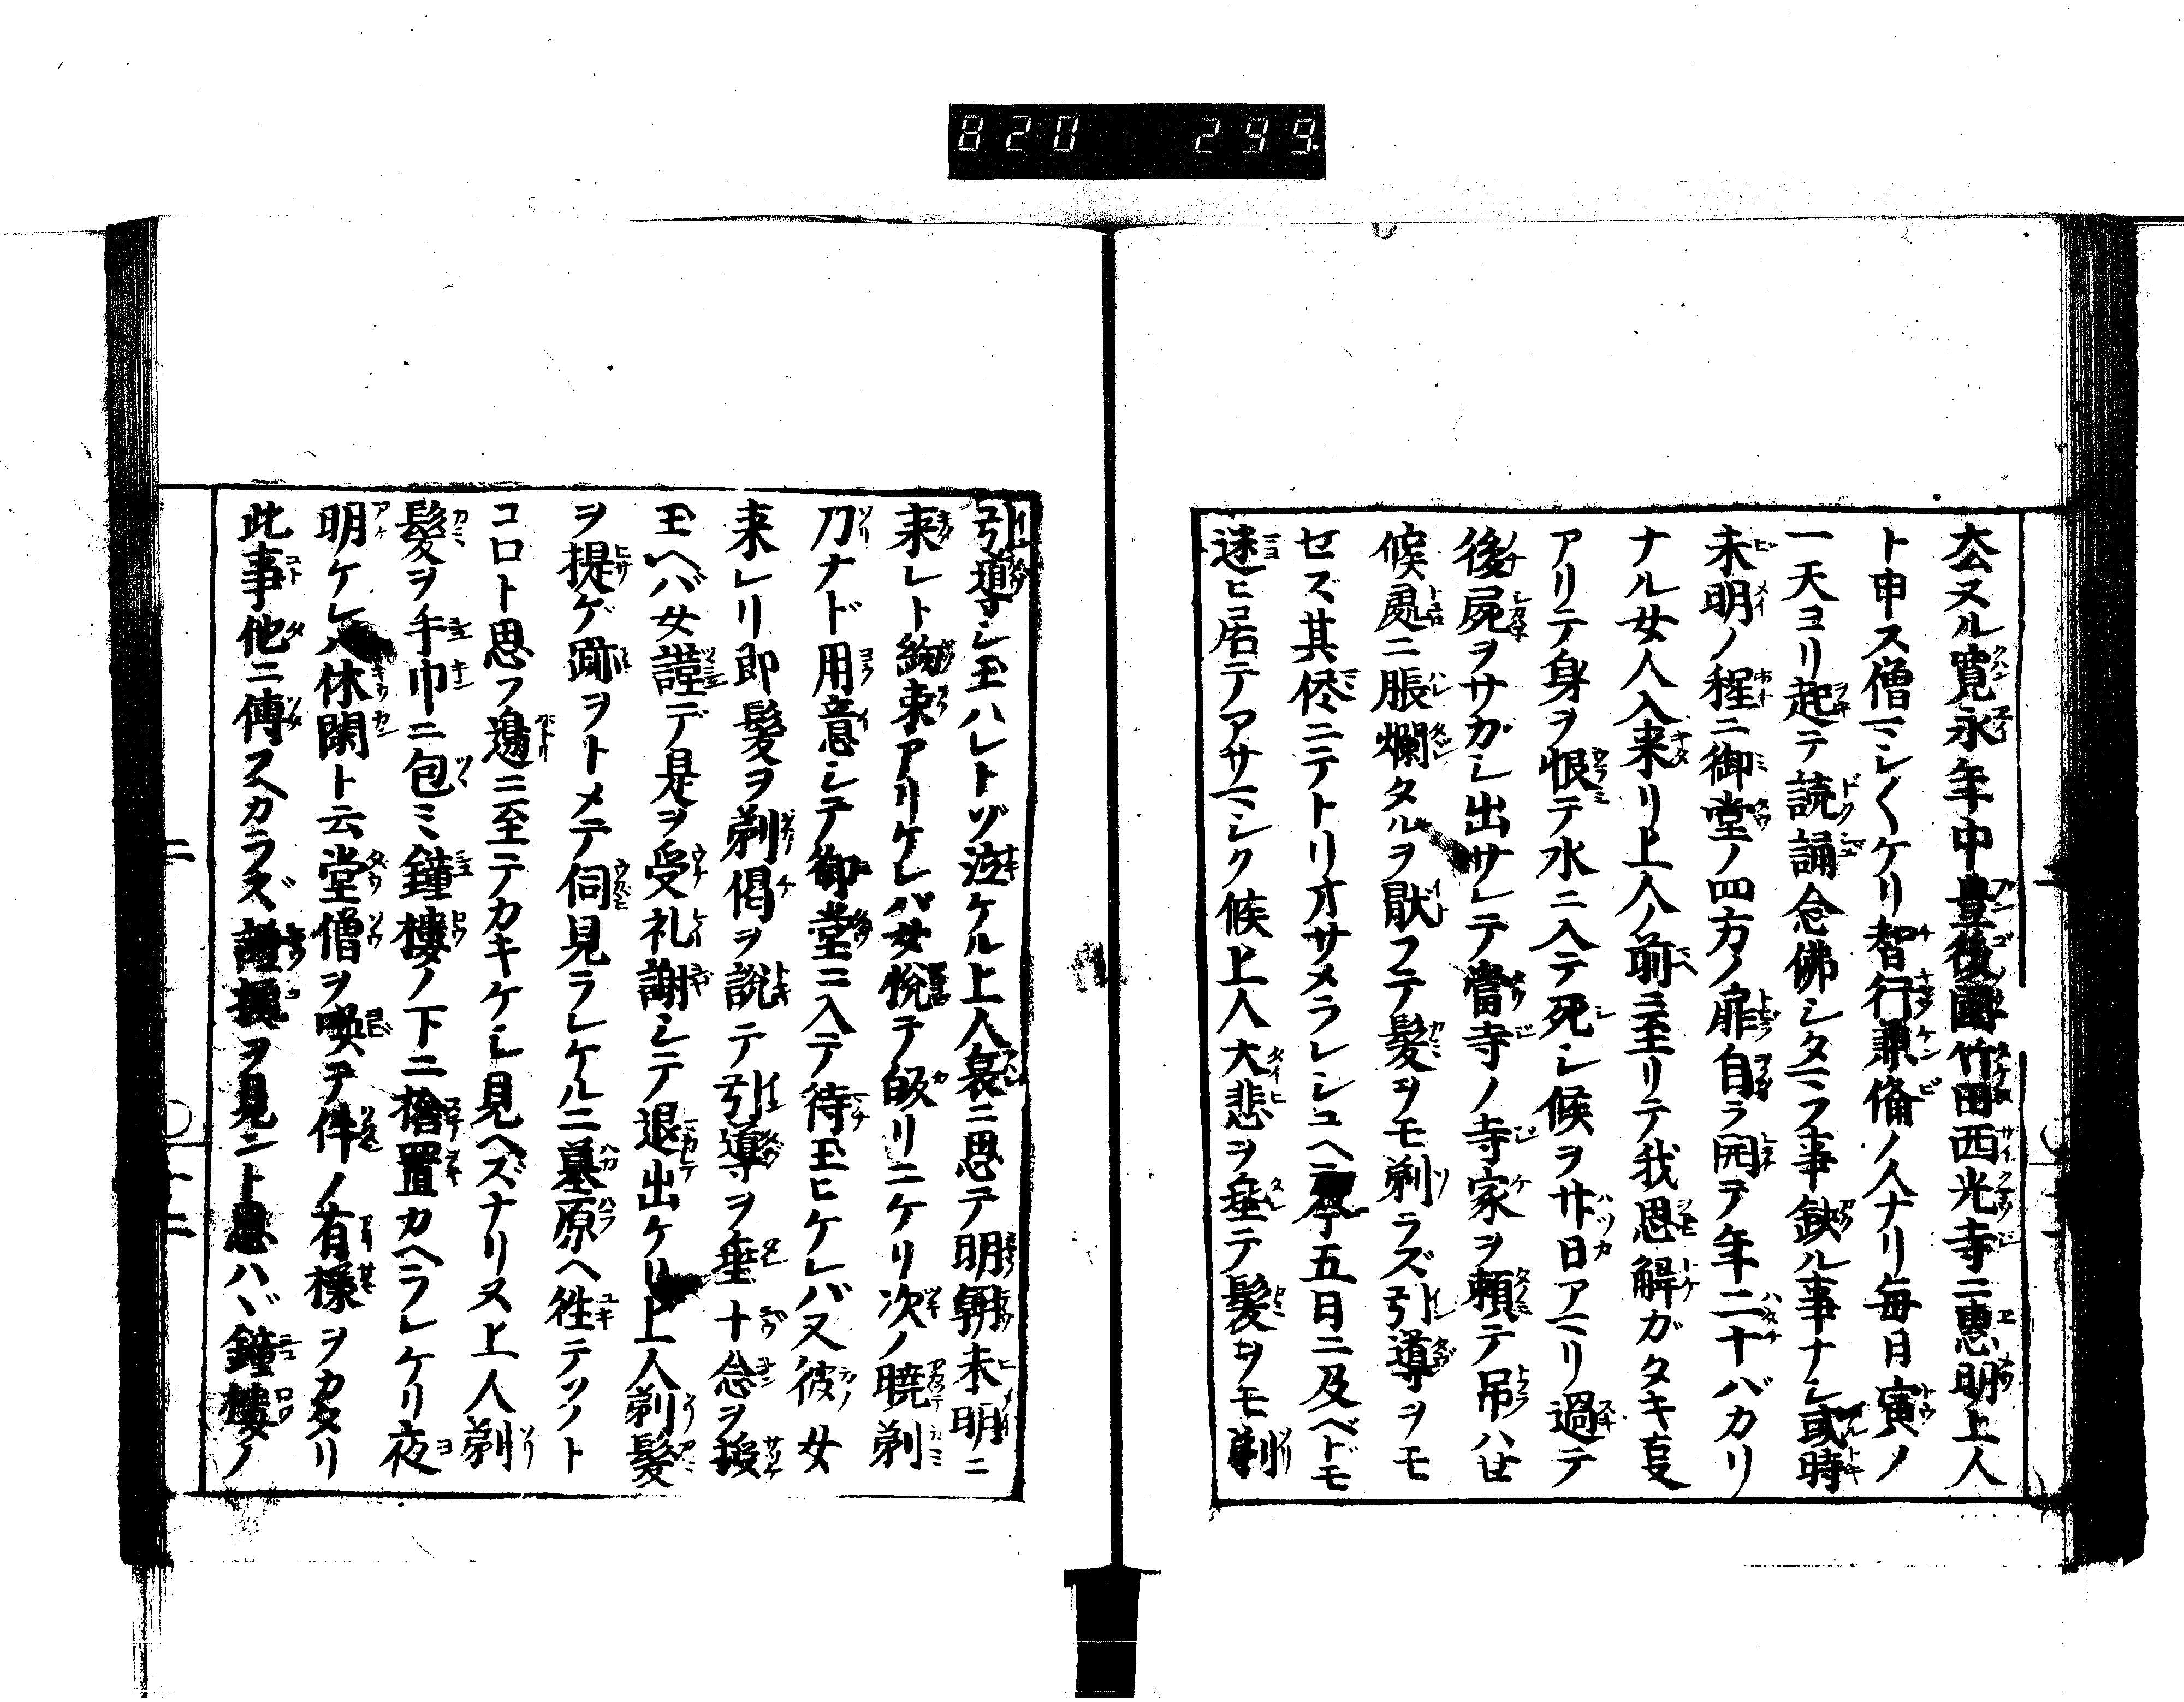 820 299
去ヌル寛永年中豊後國竹田西光寺ニ惠明上人
ト申ス僧マシ〱ケリ智行兼備ノ人ナリ毎日寅ノ
一天ヨリ起テ読誦念佛シタマフ事缺ル事ナシ或時
未明ノ程ニ御堂ノ四方ノ扉自ラ開テ年二十バカリ
ナル女人入来リ上人ノ前ニ至リテ我思解ガタキ㕝
アリテ身ヲ恨テ水ニ入テ死シ候ヲ廿日アマリ過テ
後屍ヲサガシ出サレテ當寺ノ寺家ヲ頼テ吊ハせ
候處ニ脹爛タルヲ猒フテ髪ヲモ剃ラズ引導ヲモ
せズ其侭ニテトリオサメラレシユヘ五日ニ及ベドモ
迷ヒ居テアサマシク候上人大悲ヲ垂テ髪ヲモ剃
引導シ玉ハレトゾ泣ケル上人哀ニ思テ明朝未明ニ
来レト約束アリケレバ女悦テ皈リニケリ次ノ暁剃
刀ナド用意シテ御堂ニ入テ待玉ヒケレバ又彼女
来レリ即髪ヲ剃偈ヲ説テ引導ヲ垂十念ヲ授
玉ヘバ女謹デ是ヲ受礼謝シテ退出ケリ上人剃髪
ヲ提ゲ跡ヲトメテ伺見ラレケルニ墓原ヘ徃テソト
コロト思フ邊ニ至テカキケシ見ヘズナリヌ上人剃
髪ヲ手巾ニ包ミ鐘樓ノ下ニ捨置カヘラレケリ夜
明ケレハ休閑ト云堂僧ヲ喚ヲ件ノ有様ヲカタリ
此事他ニ傳フヘカラズ證擄ヲ見ント思ハヾ鐘樓ノ
二
十二